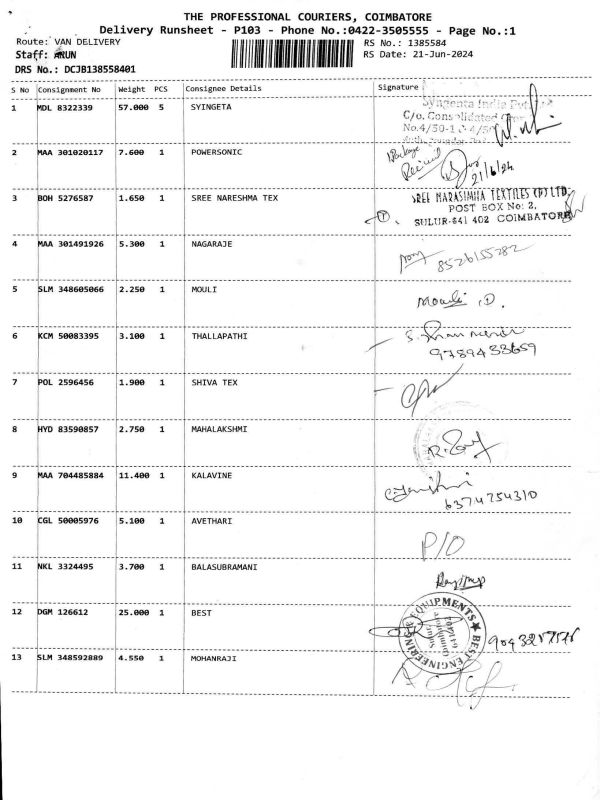 THE PROFESSIONAL COURIERS, COIMBATORE
Delivery Runsheet - P103 - Phone No.:0422-3505555 - Page No.:1
Route: VAN DELIVERY
RS No.: 1385584
Staff: ARUN
RS Date: 21-Jun-2024
DRS No.: DCJB138558401
S No Consignment No Weight PCS Consignee Details Signature
1 MDL 8322339 57.000 5 SYINGETA
Syngenta India
C/o. Consolidated
No.4/50-1
2 MAA 301020117 7.600 1 POWERSONIC
Package
Received
21/6/24
3 BOH 5276587 1.650 1 SREE NARESHMA TEX
SREE NARASIMHA TEXTILES (P) LTD.
POST BOX No: 2,
SULUR-641 402 COIMBATORE
4 MAA 301491926 5.300 1 NAGARAJE
8526155282
5 SLM 348605066 2.250 1 MOULI
Mouli .D.
6 KCM 50083395 3.100 1 THALLAPATHI
9789433659
7 POL 2596456 1.900 1 SHIVA TEX
8 HYD 83590857 2.750 1 MAHALAKSHMI
9 MAA 704485884 11.400 1 KALAVINE
6374754310
10 CGL 50005976 5.100 1 AVETHARI
P/O
11 NKL 3324495 3.700 1 BALASUBRAMANI
12 DGM 126612 25.000 1 BEST
BEST ENGINEERING EQUIPMENTS
13 SLM 348592889 4.550 1 MOHANRAJI